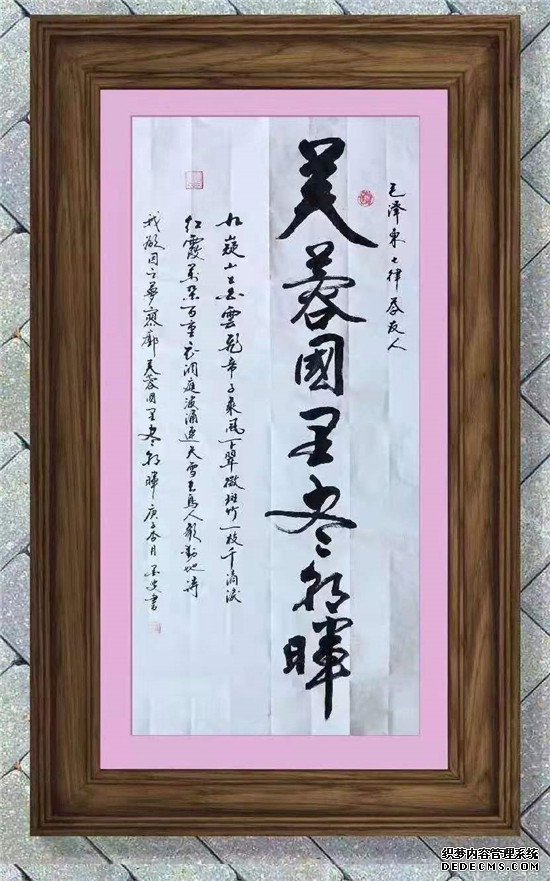 毛泽東七律答友人
芙蓉國里尽朝暉
九嶷山上白雲飛帝子乘風下翠微斑竹一枝千滴淚
红霞萬朵百重衣洞庭波涌連天雪長島人歌動地诗
我欲因之夢寥廓芙蓉国里尽朝暉 庚子春月 書
织梦内容管理系统
DEDECMS.COM